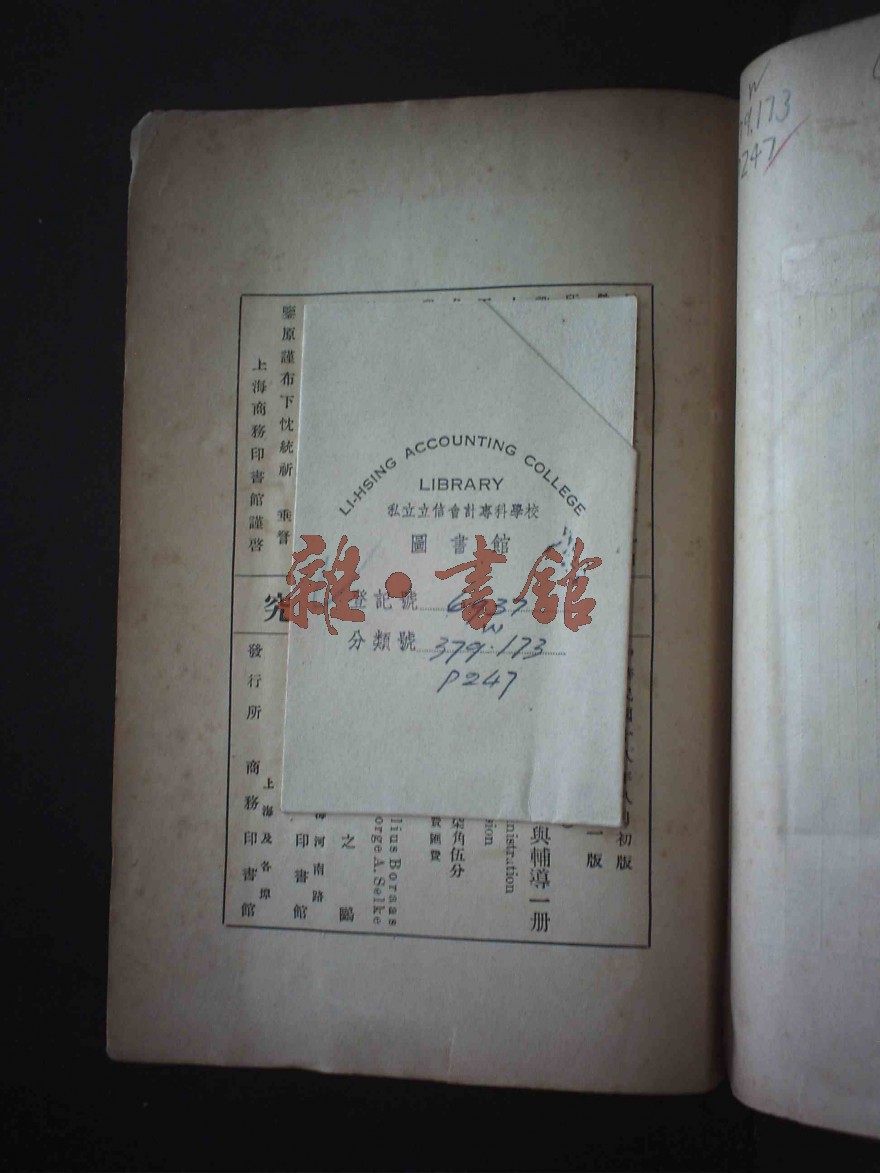 LI-HSING ACCOUNTING COLLEGE
LIBRARY
私立立信會計專科學校
圖書館
登記號
分類號 379.173
W
P247
雜·書館
初版
一版
與輔導一册
inistration
sion
柒角伍分
費匯費
lius Boraas
orge A. Selke
之鷗
河南路
印書館
上海及各埠
發行所 商務印書館
鑒原謹布下忱統祈 垂詧
上海商務印書館謹啓
究
W
9.173
247